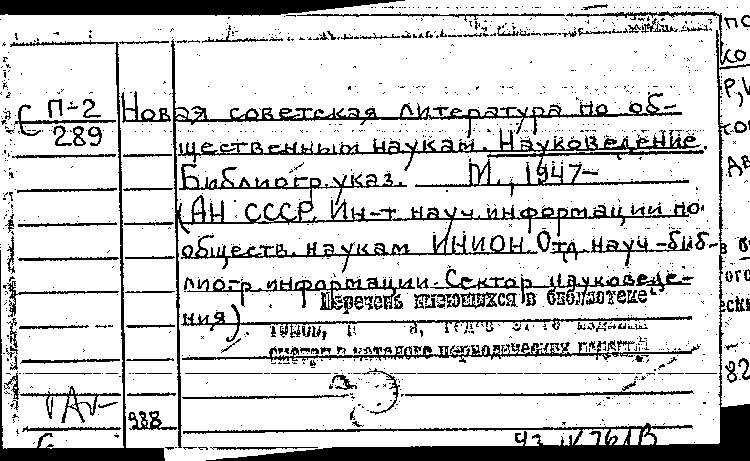 П-2
289
Новая советская литература по об-
щественным наукам. Науковедение.
Библиогр. указ. М., 1947-
(АН СССР. Ин-т науч. информации по
обществ. наукам ИНИОН. Отд. науч.-биб-
лиогр. информации. Сектор науковеде-
ния)
Перечень имеющихся в библиотеке
томов,
смотри в каталоге периодических изданий
988
82